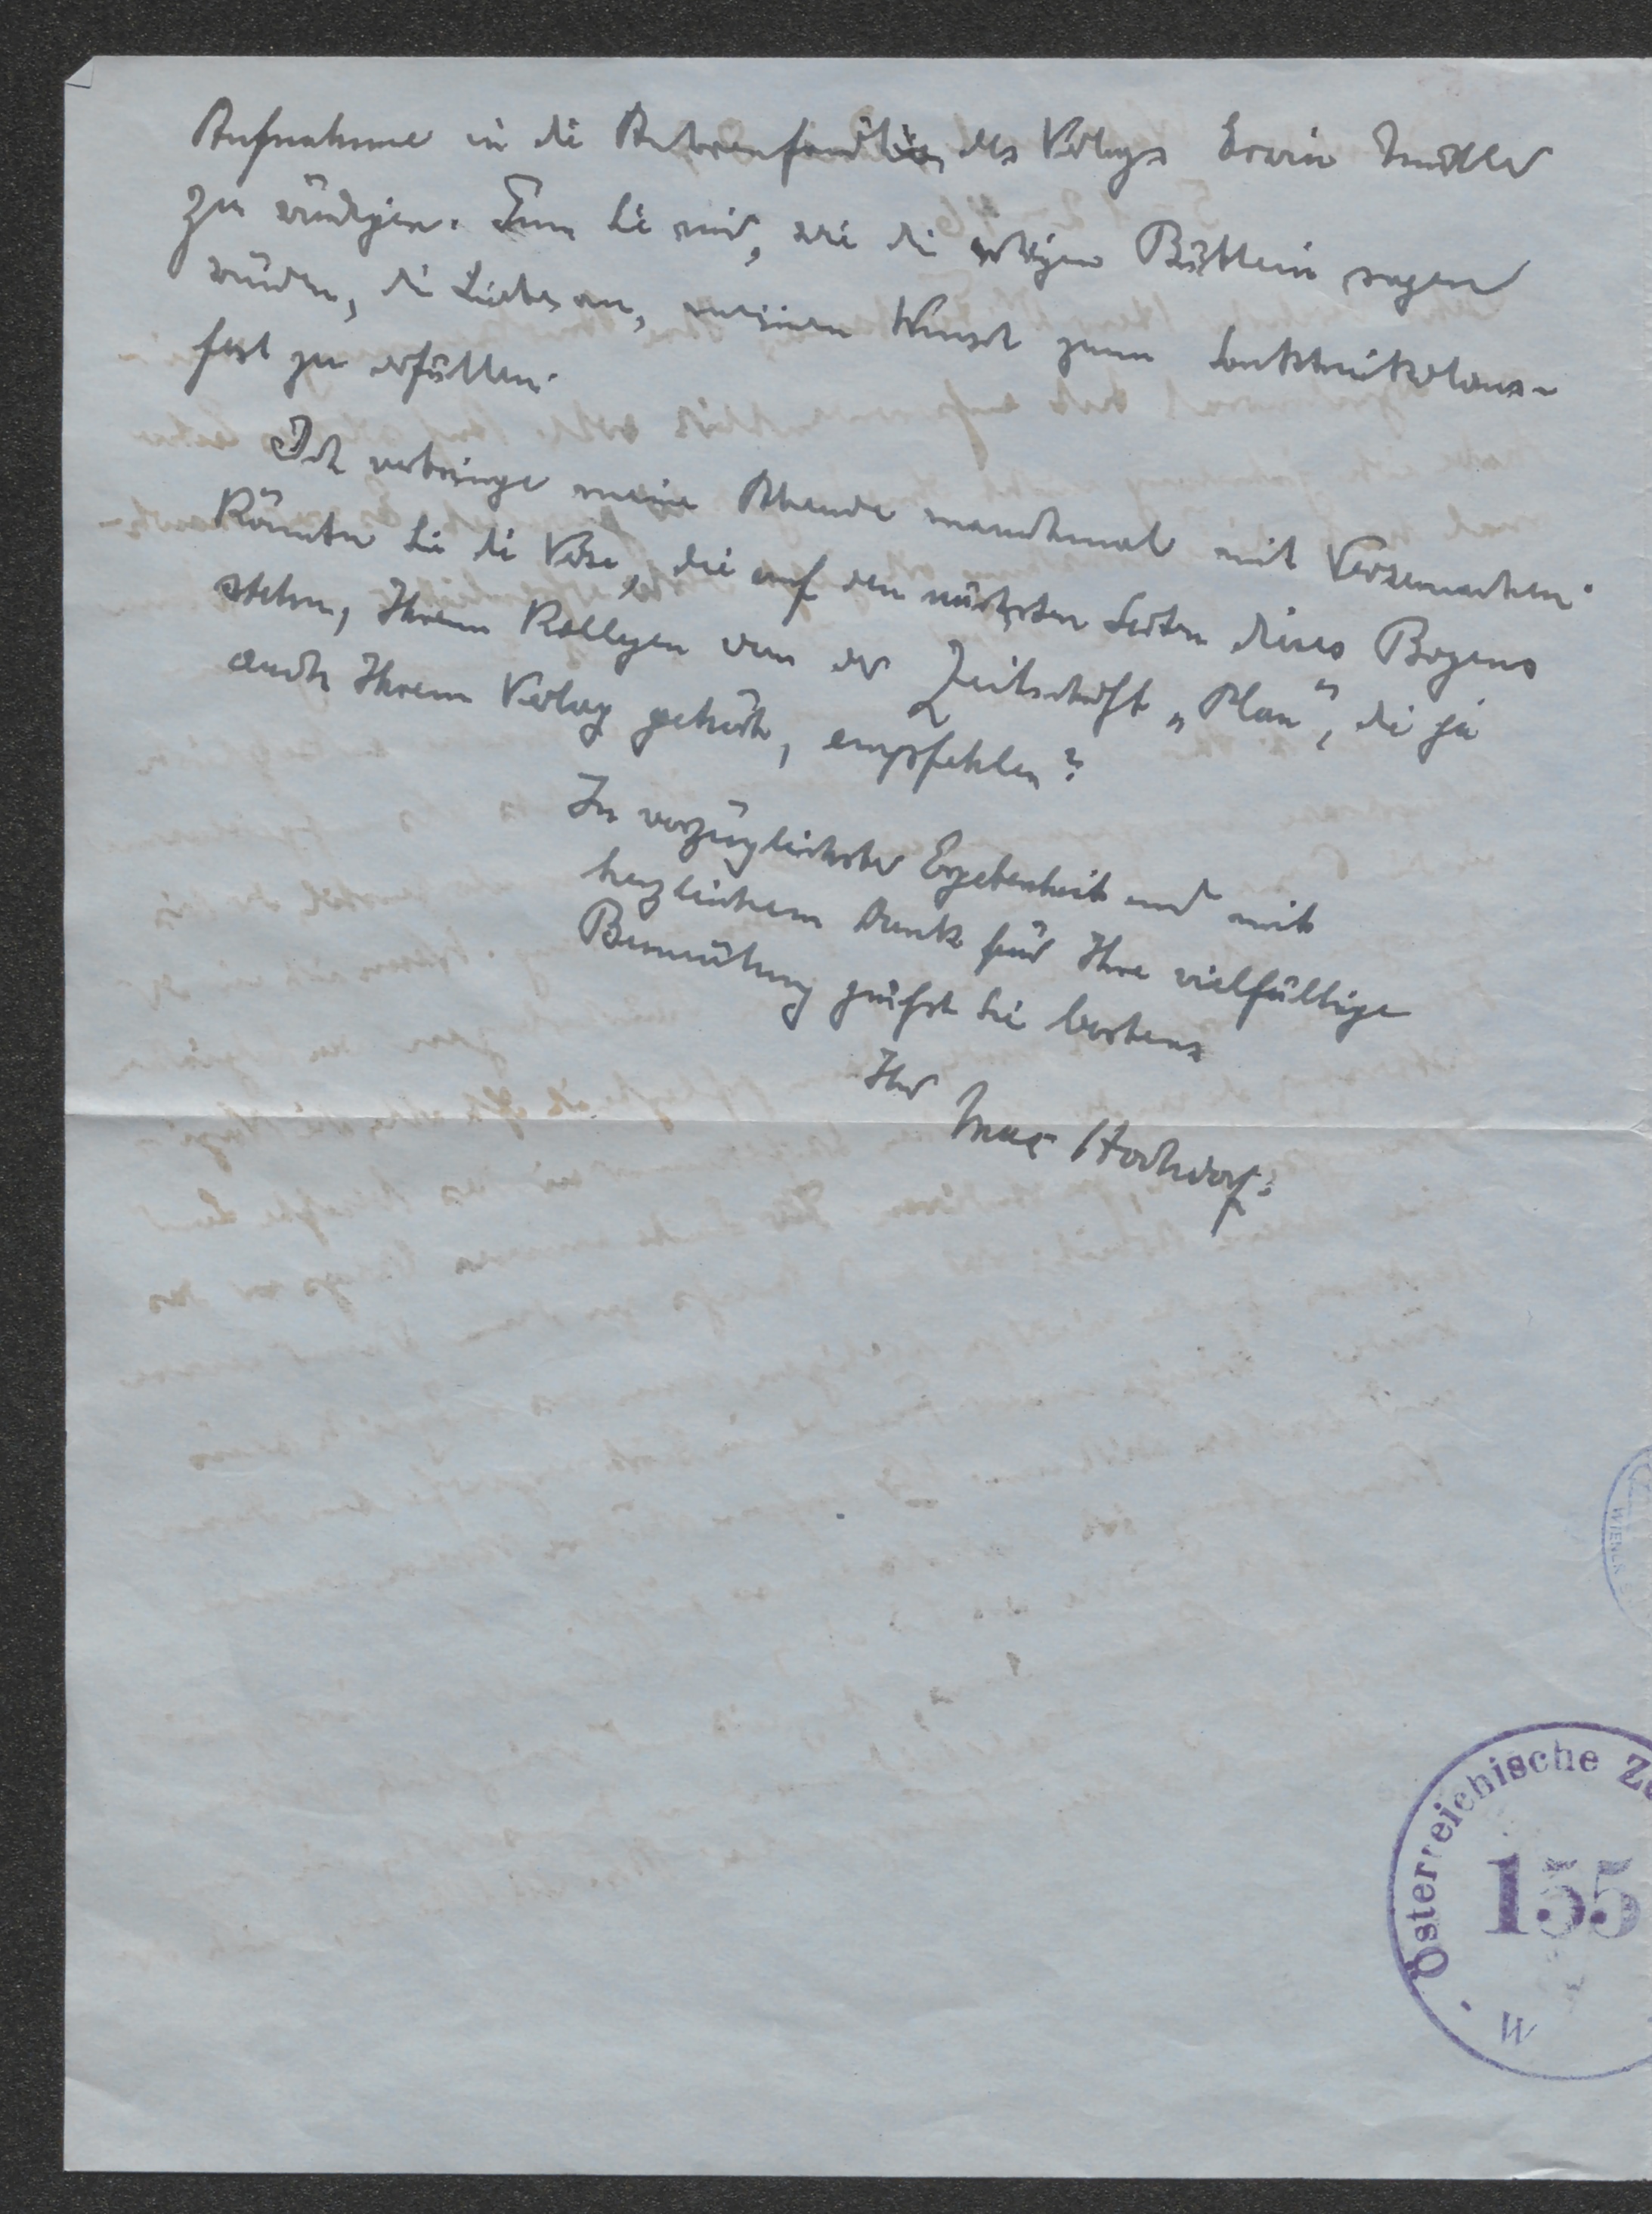 Aufnahme in die Autorenfamilie des Verlags Erwin Müller
zu würdigen. Tun Sie mir, wie die Brüsseler sagen
würden, die Liebe an, meinen Wunsch zum Sanktnikolaus-
fest zu erfüllen.
Ich verbringe meine Abende manchmal mit Versemachen.
Könnten Sie die Verse, die auf den nächsten Seiten dieses Bogens
stehn, Ihrem Kollegen von der Zeitschrift „Plan“, die ja
auch Ihrem Verlag gehört, empfehlen?
In vorzüglichster Ergebenheit und mit
herzlichem Dank für Ihre vielfältige
Bemühung grüßt Sie bestens
Ihr Max Hochdorf.
WIENER
Österreichische Ze
155
W